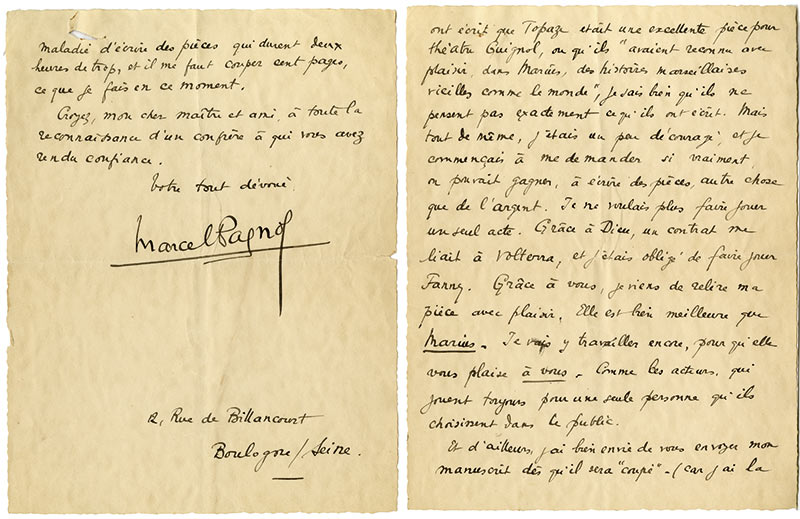 maladie d'écrire des pièces qui durent deux
heures de trop, et il me faut couper cent pages,
ce que je fais en ce moment.
Croyez, mon cher maître et ami, à toute la
reconnaissance d'un confrère à qui vous avez
rendu confiance.
Votre tout dévoué
Marcel Pagnol
12, Rue de Billancourt
Boulogne/Seine.
ont écrit que Topaze était une excellente pièce pour
théâtre Guignol, ou qu'ils "avaient reconnu avec
plaisir, dans Marius, des histoires marseillaises
vieilles comme le monde", je sais bien qu'ils ne
pensent pas exactement ce qu'ils ont écrit. Mais
tout de même, j'étais un peu découragé, et je
commençais à me demander si vraiment,
on pouvait gagner, à écrire des pièces, autre chose
que de l'argent. Je ne voulais plus faire jouer
un seul acte. Grâce à Dieu, un contrat me
liait à Volterra, et j'étais obligé de faire jouer
Fanny. Grâce à vous, je viens de relire ma
pièce avec plaisir. Elle est bien meilleure que
Marius. Je vais y travailler encore, pour qu'elle
vous plaise à vous. Comme les acteurs, qui
jouent toujours pour une seule personne qu'ils
choisissent dans le public.
Et d'ailleurs, j'ai bien envie de vous envoyer mon
manuscrit dès qu'il sera "coupé" - (car j'ai la